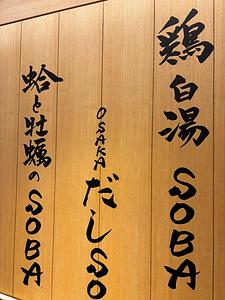 鶏白湯 SOBA
OSAKA だし SO
蛤と牡蠣の SOBA